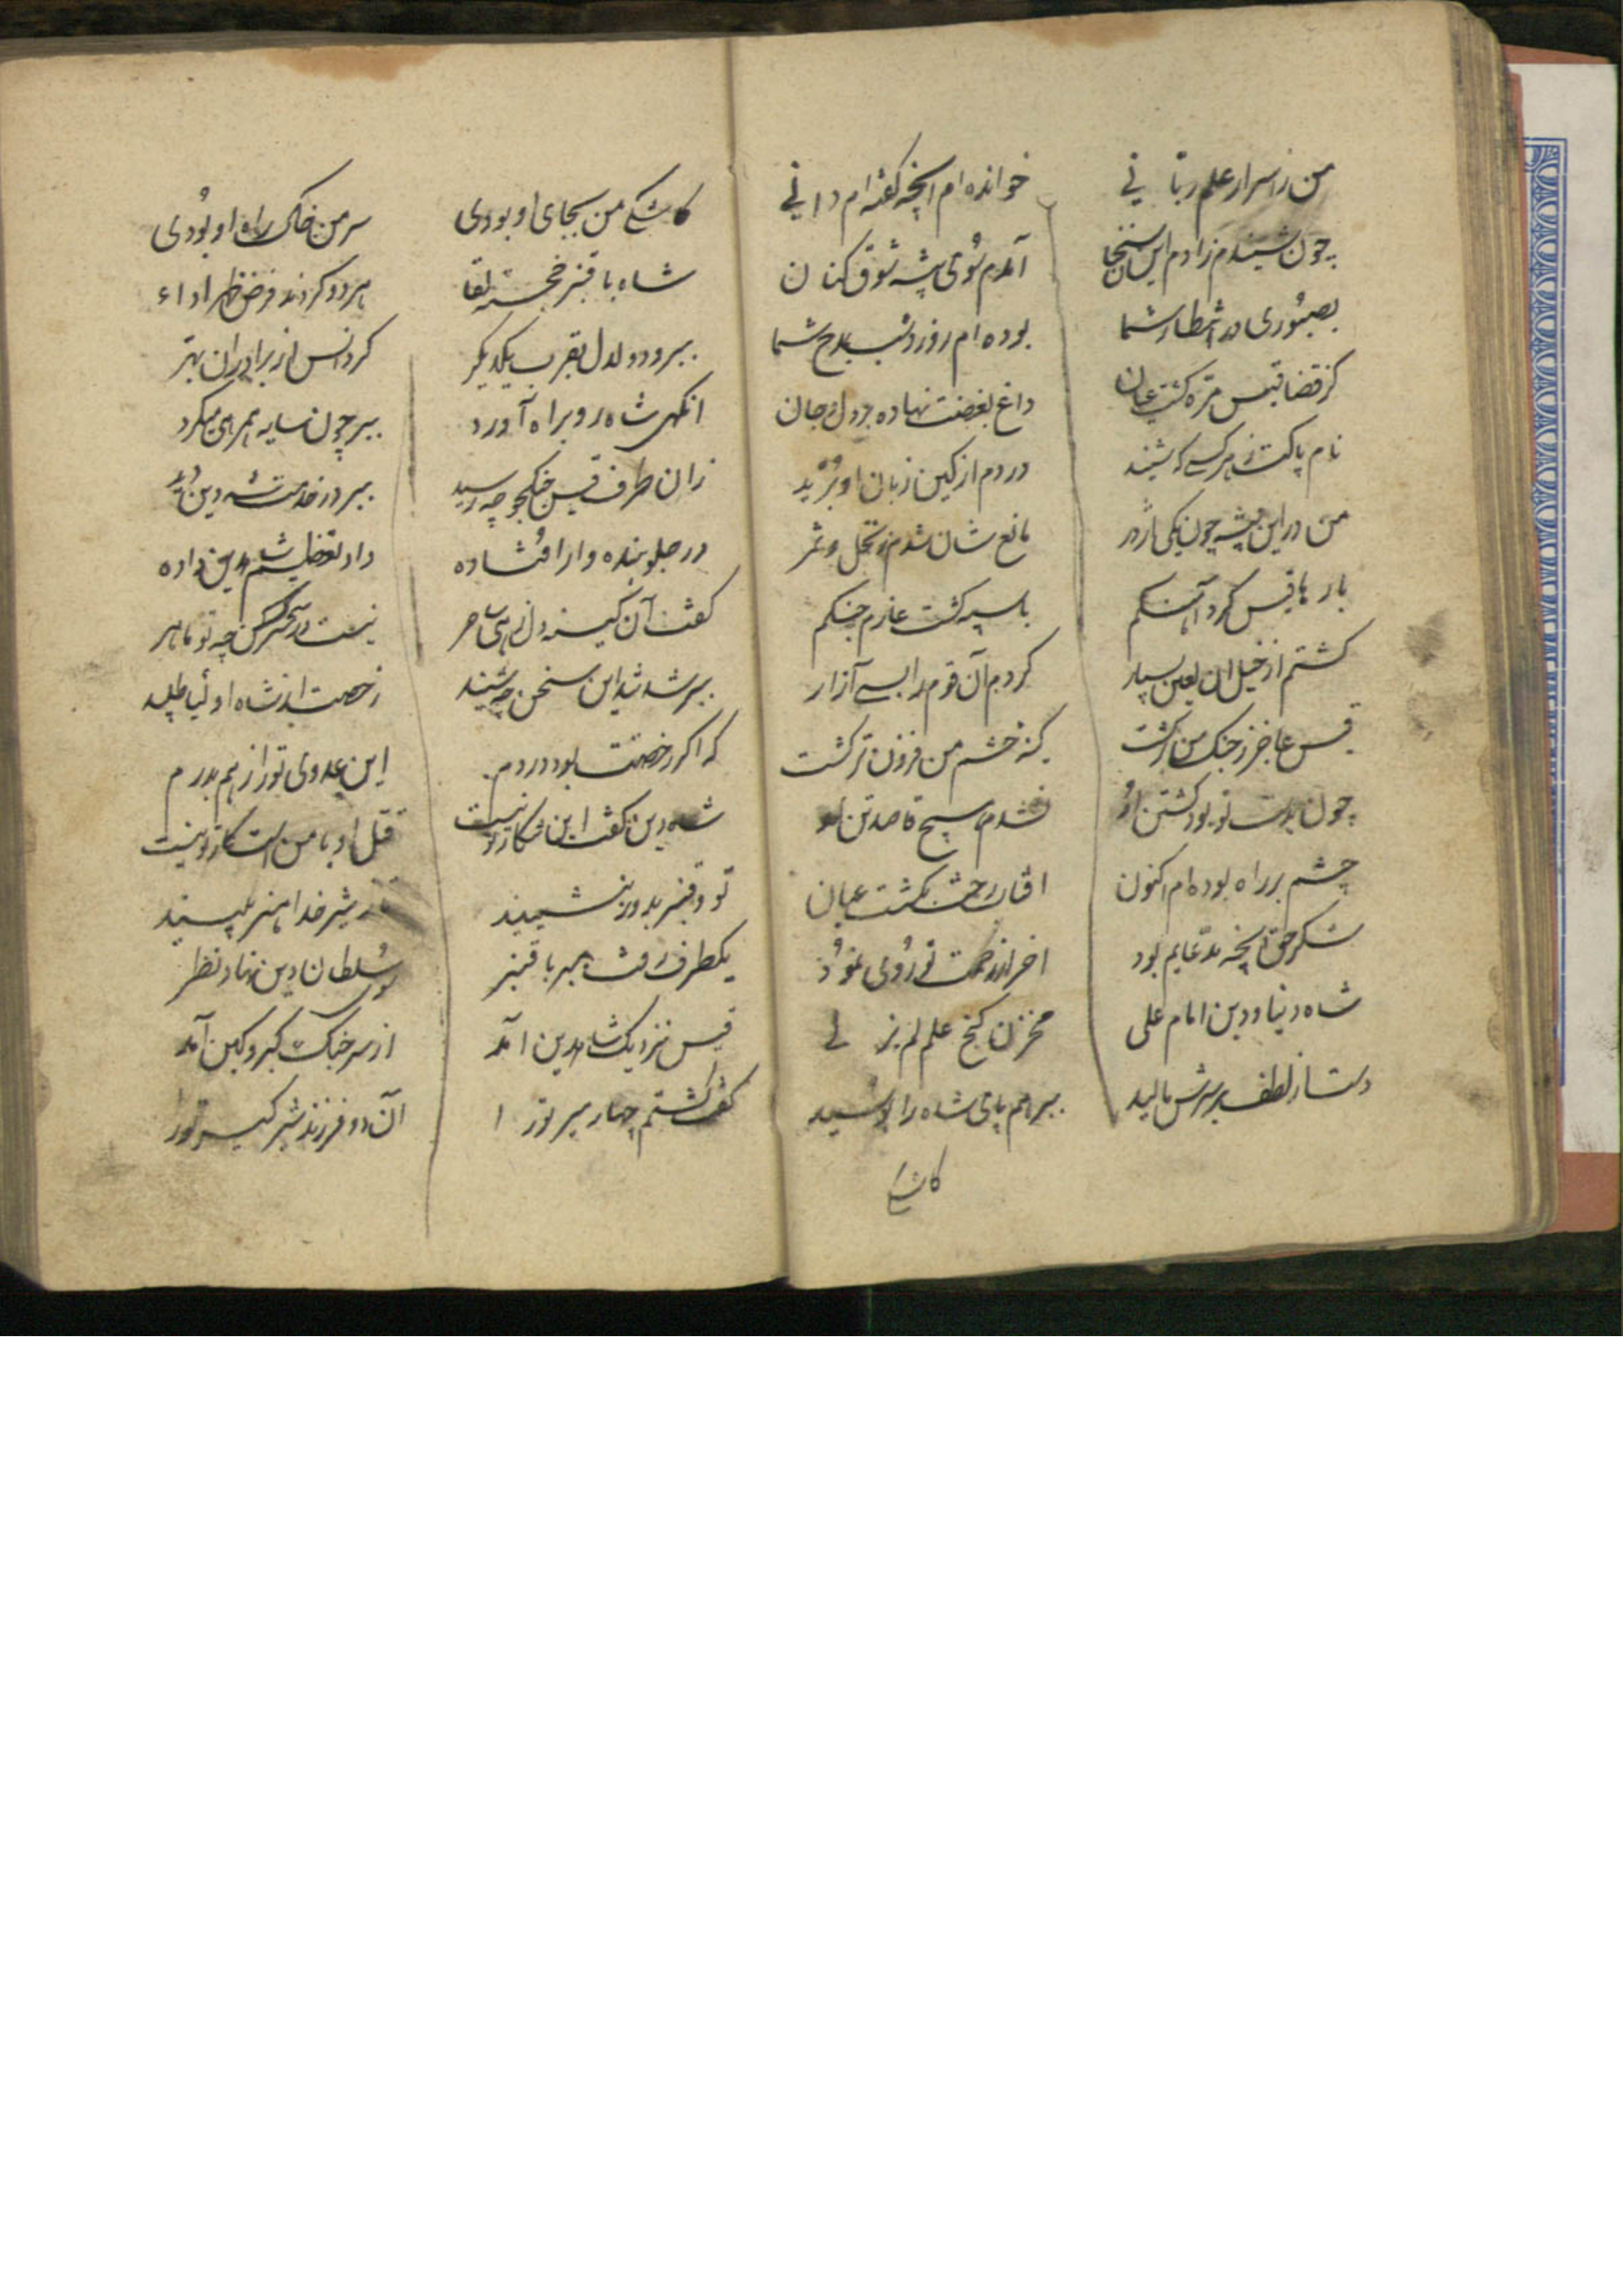 من ز اسرار علم ربانی خوانده ام آنچه گفته ام دانی
چون شنیدم ز آدم این سخنان آمدم سوی بیشه شوق کنان
بصبوری در انتظار شما بوده ام روز و شب بمدح شما
کز قضا قیس مره گشت عیان داغ بغضت نهاده بر دل و جان
نام پاکت ز هر کسی که شنید در دم از کین زبان او برید
من در این بیشه چون یکی اژدر مانع شان شدم
بارها قیس کرد آهنگم با سپه گشت عازم جنگم
کشتم از خیل آن لعین بسیار کردم آن قوم را بسی آزار
قیس عاجز ز جنگ من برگشت کینه خشم من فزون تر گشت
چون بدست تو بود کشتن او نشدم هیچ قاصد تن او
چشم بر راه بوده ام اکنون
شکر حق آنچه مدعایم بود آخر از رحمت تو روی نمود
شاه دنیا و دین امام علی مخزن گنج علم لم یزلی
دست از لطف بر سرش مالید ببر هم پای شاه را بوسید
کاشکی
کاشکی من بجای او بودی سر من خاک راه او بودی
شاه با قنبر خجسته لقا هر دو کردند فرض ظهر اداء
ببر و دلدل بقرب یکدیگر کرد انس از برادران بهتر
آنگهی شاه رو براه آورد ببر چون سایه همرهی میکرد
زان طرف قیس جنگجو چه رسید ببر در خدمت شه دین دید
در جلو بنده وار افتاده داد تعظیم شاه دین داده
گفت آن کینه دل زهی ساحر نیست در سحر کس چه تو ماهر
ببر شد این سخن چه شنید رخصت از شاه اولیا طلبید
که اگر رخصتت بود در دم این عدوی تو را ز هم بدرم
شه دین گفت این شکار تو نیست قتل او با من است کار تو نیست
تو و قنبر بدور بنشینید شیر خدا هنر بینید
یکطرف رفت ببر با قنبر سلطان دین نهاد نظر
قیس نزدیک شاه دین آمد از سر جنگ و کبر و کین آمد
گفت کشتم چهار میر تو را آن دو فرزند شیر گیر تو را